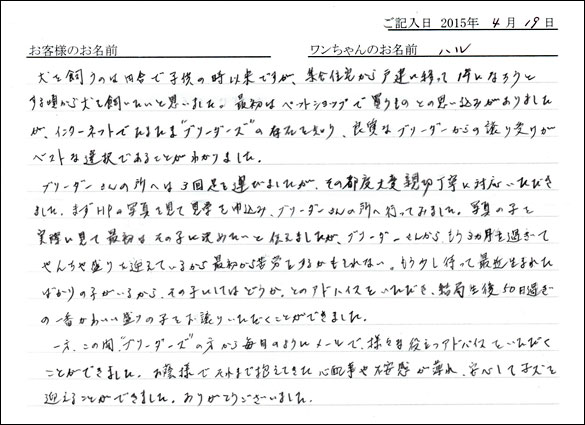 ご記入日 2015年 4月 19日
お客様のお名前 ワンちゃんのお名前 ハル
犬を飼うのは田舎で子供の時以来ですが、集合住宅から戸建に移って1年になろうと
する頃から犬を飼いたいと思いました。最初はペットショップで買うもの との思い込みがありました
が、インターネットでたまたま"ブリーダーズ"の存在を知り、良質なブリーダーからの譲り受けが
ベストな選択であることがわかりました。
ブリーダーさんの所へは3回足を運びましたが、その都度大変親切丁寧に対応いただき
ました。まずHPの写真を見て見学を申込み、ブリーダーさんの所へ行ってみました。写真の子を
実際に見て最初はその子に決めたいと伝えましたが、ブリーダーさんから、もう3ヵ月を過ぎて
やんちゃ盛りを迎えているから最初から苦労をするかもしれない。もう少し待って最近生まれた
ばかりの子がいるから、その子にしてはどうか、とのアドバイスをいただき、結局生後50日過ぎ
の一番かわいい盛りの子をお譲りいただくことができました。
一方、この間、"ブリーダーズ"の方から毎日のようにメールで、様々な役立つアドバイスをいただく
ことができました。お陰様でそれまで抱えてきた心配事や不安感が薄れ、安心して子犬を
迎えることができました。ありがとうございました。